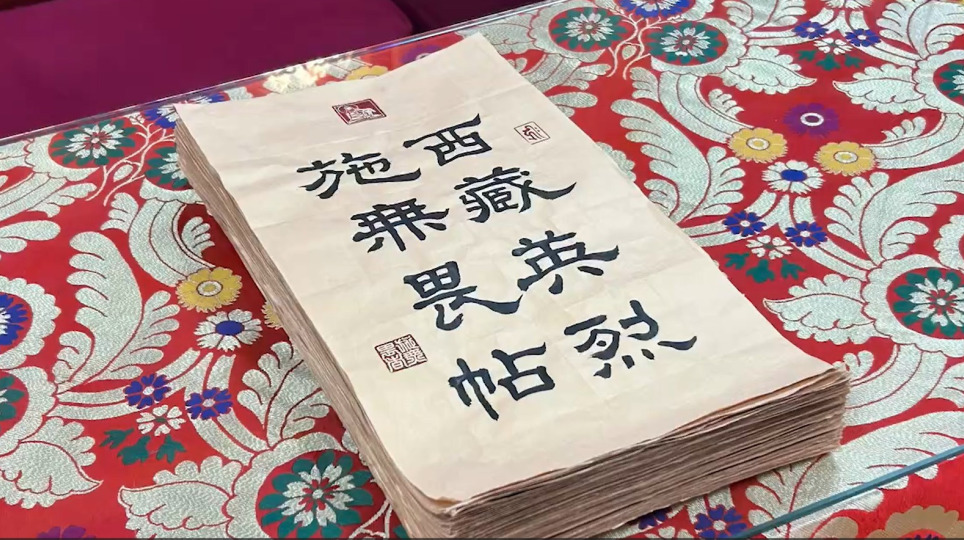 西藏英烈
施無畏帖